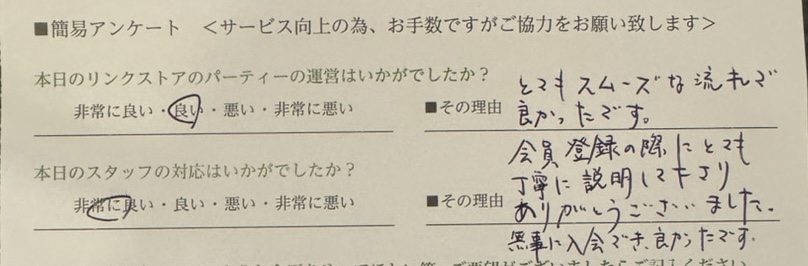 ■簡易アンケート ＜サービス向上の為、お手数ですがご協力をお願い致します＞
本日のリンクストアのパーティーの運営はいかがでしたか？
非常に良い・良い・悪い・非常に悪い
■その理由
とてもスムーズな流れで
良かったです。
本日のスタッフの対応はいかがでしたか？
非常に良い・良い・悪い・非常に悪い
■その理由
会員登録の際にとても
丁寧に説明して下さり
ありがとうございました。
無事に入会でき、良かったです。